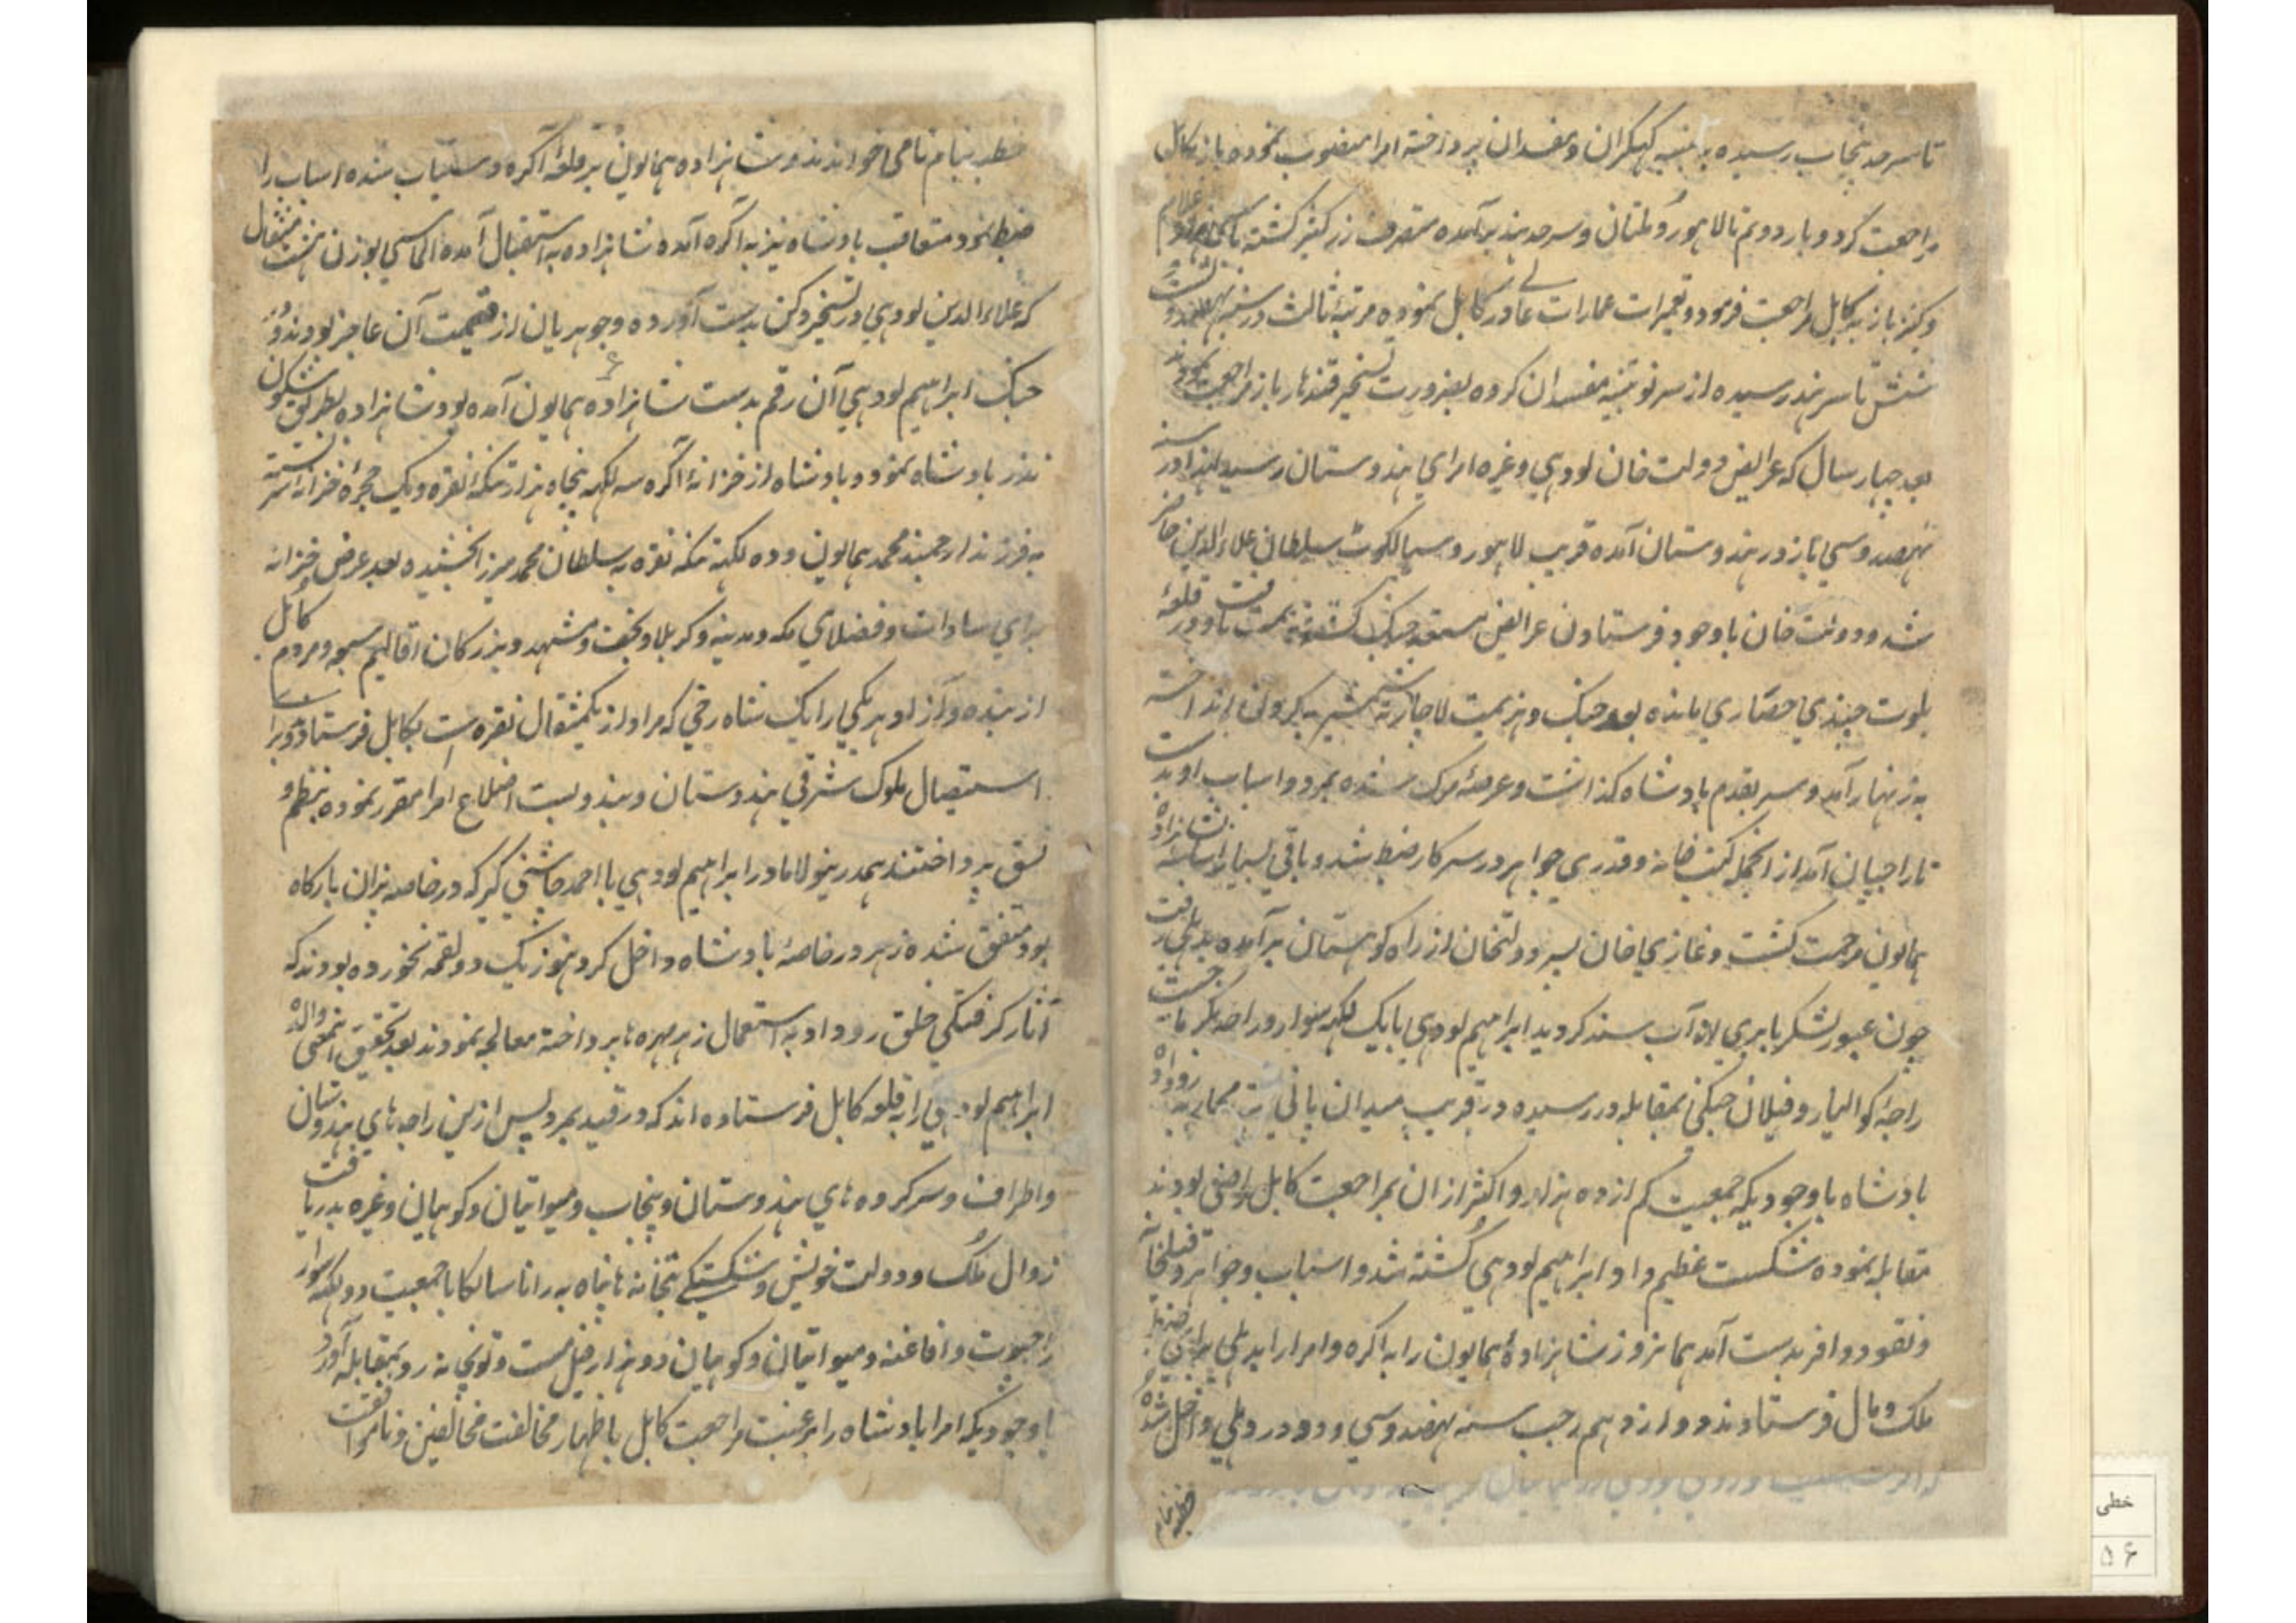 تا سرحد پنجاب رسیده به تنبیه کهکران و مفسدان پرداخته امرا منصوب نموده باز بکابل
مراجعت کرد و بار دویم تا لاهور و ملتان و سرحد هند برآمده متصرف زر کثیر گشته با اسرای غلام
و کنیز باز به کابل مراجعت فرمود و تعمیرات عمارات عالی در کابل نموده مرتبهٔ ثالث در سنه نهصد و بیست
شش تا سرهند رسیده از سر نو تنبیه مفسدان کرده بضرورت تسخیر قندهار باز مراجعت نمودند
بعد چهار سال که عرایض دولت خان لودهی و غیره امرای هندوستان رسید لهذا در سنه
نهصد و سی باز در هندوستان آمده قریب لاهور و سیالکوت سلطان علاءالدین حاضر
شد و دولت خان باوجود فرستادن عرایض مستعد جنک کشته هزیمت یافت و در قلعهٔ
بلوت چندی حصاری مانده بعد جنک و هزیمت لاچار ته شمشیر به کردن انداخته
به زنهار آمد و سر بقدم پادشاه کذاشت و عرصهٔ مرک شده بمرد و اسباب او بدست
تاراجیان آمد از انجمله کتب خانه و قدری جواهر در سرکار ضبط شد و باقی بسیار اسباب به شاهزاده
همایون مرحمت کشت و غازیخان پسر دولتخان از راه کوهستان برآمده بدهلی رفت
چون عبور لشکر بابری از آب سند کردید ابراهیم لودهی با یک لکهه سوار و راجه بکرماجیت
راجهٔ کوالیار و فیلان جنکی بمقابله در رسیده در قریب میدان پانی پت محاربه رو داد
پادشاه باوجودیکه جمعیت کم از ده هزار و اکثر از ان بمراجعت کابل راضی بودند
مقابله نموده شکست عظیم داد ابراهیم لودهی کشته شد و اسباب و جواهر و فیلخانه
و نقود وافر بدست آمد همانروز شاهزاده همایون را به اکره و امرا را بدهلی برای ضبط
ملک و مال فرستادند و دوازدهم رجب سنه نهصد و سی و دو در دهلی داخل شده
خطبه بنام
خطبه بنام نامی خواندند و شاهزاده همایون بر قلعهٔ آکره دستیاب شده اسباب را
ضبط نمود متعاقب بادشاه نیز به اکره آمده شاهزاده به استقبال آمده الماسی بوزن هشت مثقال
که علاءالدین لودهی در تسخیر دکن بدست آورده و جوهریان از قیمت آن عاجز بودند و در
جنک ابراهیم لودهی آن رقم بدست شاهزاده همایون آمده بود شاهزاده بطریق شکون
نذر بادشاه نمود و بادشاه از خزانهٔ اکره سه لکهه پنجاه هزار تنکه نقره و یک حجرهٔ خزانه سر بسته
به فرزند ارجمند محمد همایون و ده لکهه تنکه نقره به سلطان محمد میرزا بخشیده بعد عرض خزانه
برای سادات و فضلای مکه و مدینه و کربلا و نجف و مشهد و بزرکان اقالیم سبعه و مردم کابل
از بنده و آزاد هر یکی را یک شاه رخی که مراد از یکمثقال نقره است بکابل فرستاد و برای
استیصال ملوک شرقی هندوستان و بندوبست اضلاع امرا مقرر نموده بنظم و
نسق پرداختند همدرینولا مادر ابراهیم لودهی با احمد چاشنی کیر که در خاصه پزان بارکاه
بود متفق شده زهر در خاصهٔ بادشاه داخل کرد هنوز یک دو لقمه نخورده بودند که
آثار کرفتکی خلق رو داد به استعمال زهر مهره ها پرداخته معالجه نمودند بعد تحقیق انمعنی والدهٔ
ابراهیم لودهی را به قلعه کابل فرستاده اند که در قید بمرد پس ازین راجه های هندوستان
و اطراف و سرکرده های هندوستان و پنجاب و میواتیان و کوهیان و غیره بدریافت
زوال ملک و دولت خویش و شکستکی بتخانه ها پناه به رانا سانکا با جمعیت دو لکهه سوار
راجپوت و افاغنه و میواتیان و کوهیان دو هزار فیل مست و توپخانه رو بمقابله آورد
باوجودیکه امرا بادشاه را بر عنیت مراجعت کابل با ظهار مخالفت مخالفین و ناموافقت
خطی
۵۶